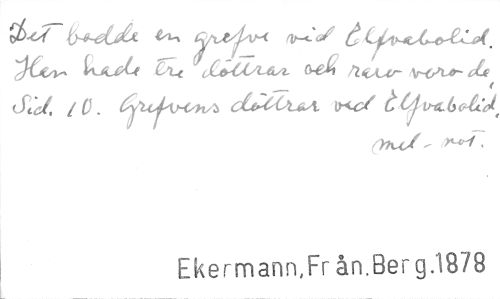 Det bodde en grefve vid Elfvabolid.
Han hade tre döttrar och raro voro de,
Sid. 10. Grefvens döttrar vid Elfvabolid.
mel-not.
Ekermann,Från.Berg.1878